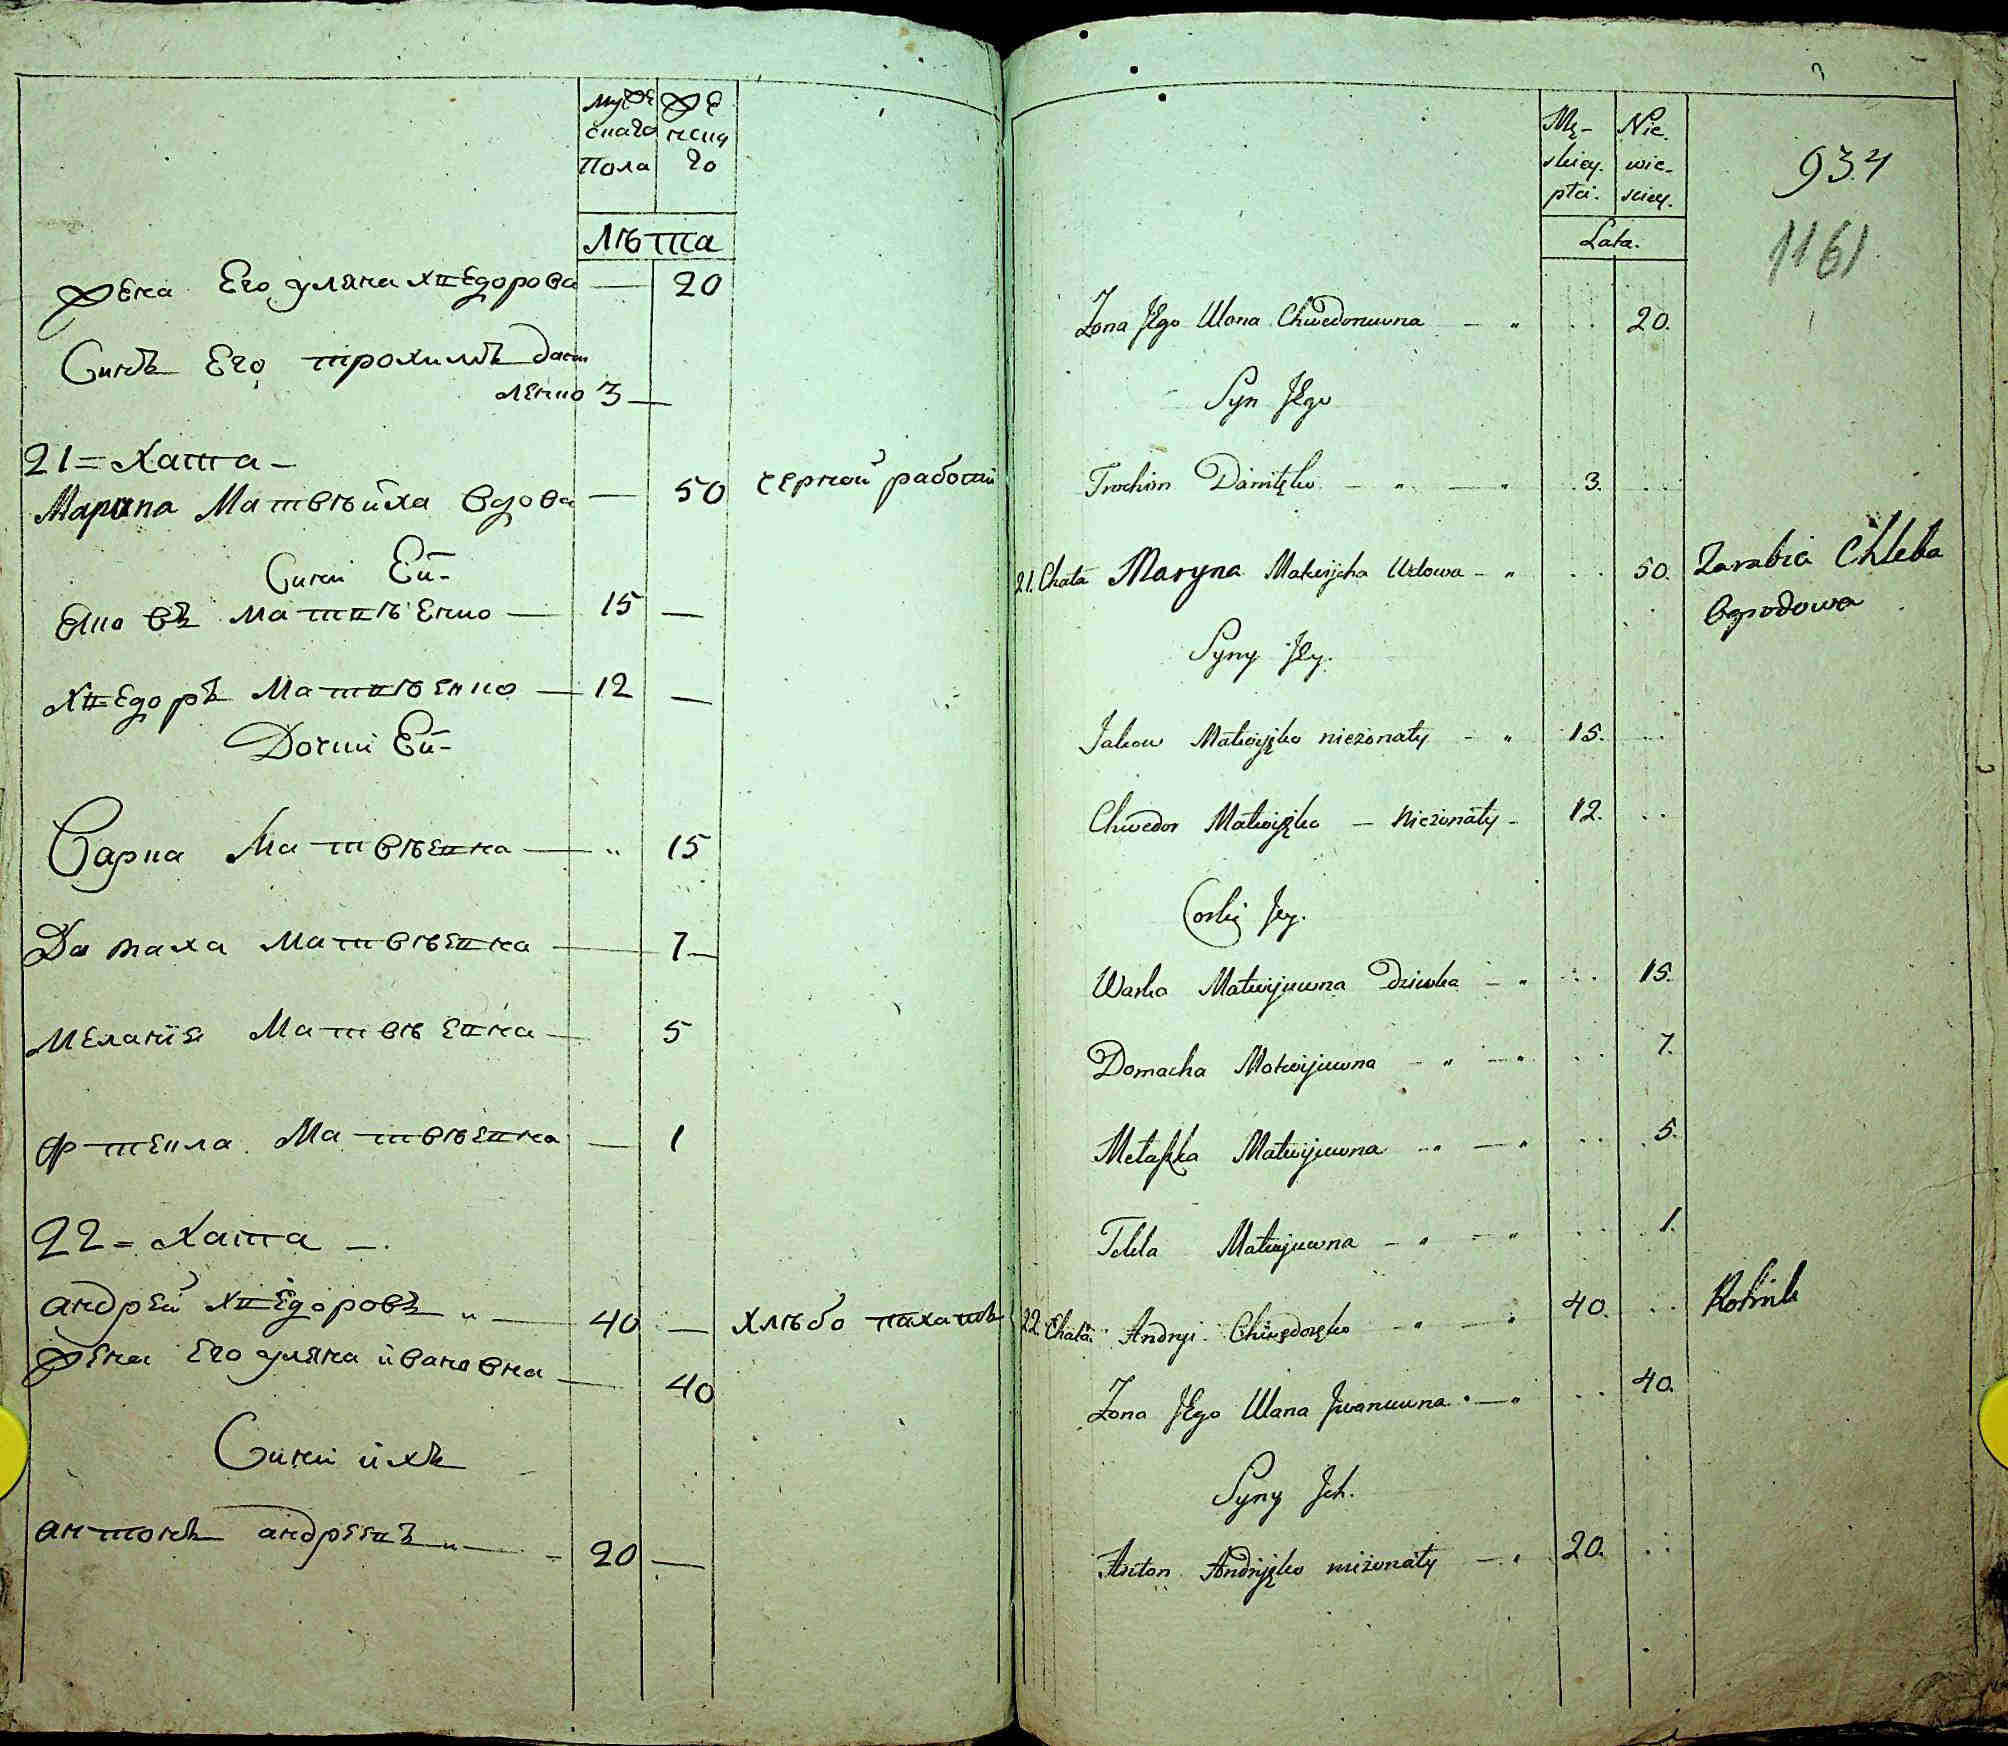 мужескаго Пола
женскаго
Лѣта
жена Его уляна хведорова — 20
Синъ Его трохимъ дани
ленко 3 —
21 = хата —
Марина Матвѣйха вдова — 50 черной работи
Сини Ей
Яковъ матвѣенко — 15 —
хведоръ Матвѣенко — 12 —
Дочки Ей
Варка Матвѣевна — " 15
Домаха Матвѣевна — 7 —
меланія Матвѣевна — 5
Фтекла Матвѣевна — 1
22 = хата —
андрей хведоровъ " — 40 — хлѣбо пахатъ
жена Его уляна ивановна — 40
Сини ихъ
антонъ андреевъ " — 20 —
Mę-
skiey
płci.
Nie-
wie-
sciey.
Lata.
934
1161
Zona Jego Ulana Chwedoruwna — " .. 20.
Syn Jego
Trochim Daniłęko — " — " 3. ..
21. Chata Maryna Matwijcha Wdowa — " .. 50. Zarabia Chleba
Ogrodowa
Syny Jey.
Jakow Matwijęko niezonaty — " 15. ..
Chwedor Matwijęko — niezonaty — 12. ..
Corki Jey.
Warka Matwijuwna Dziwka — " .. 15.
Domacha Matwijuwna — " — " .. 7.
Metaszka Matwijuwna " — " .. 5.
Tekla Matwijuwna — " — " . 1.
22. Chata Andryi Chwedoręko " — " 40. .. Rolnik
Zona Jego Ulana Jwanuwna — " .. 40.
Syny Jch.
Anton Andryjęko niezonaty — " 20. ..